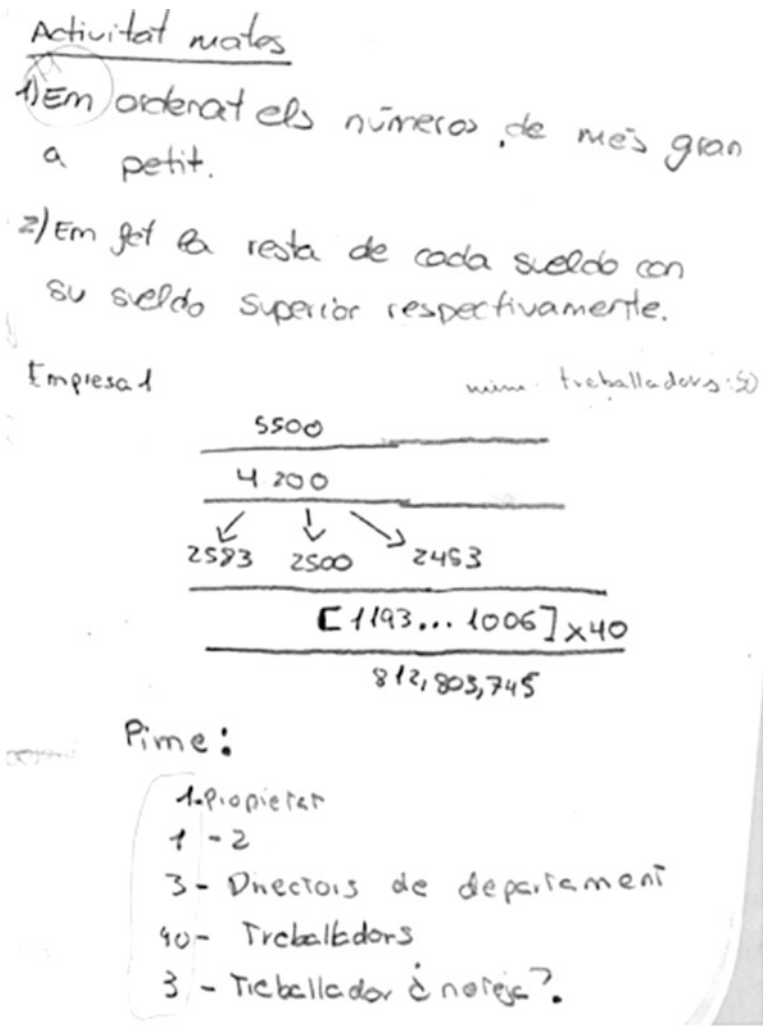 Activitat mates
1) Em ordenat els números, de més gran
a petit.
2) Em fet la resta de cada sueldo con
su sueldo superior respectivamente.
Empresa 1
núm. treballadors: 50
5500
4.200
2583 2500 2453
[1193... 1006] x40
812, 803, 745
Pime:
1- Propietar
1 - 2
3 - Directors de departament
40 - Treballadors
3 - Treballador ¿neteja?.